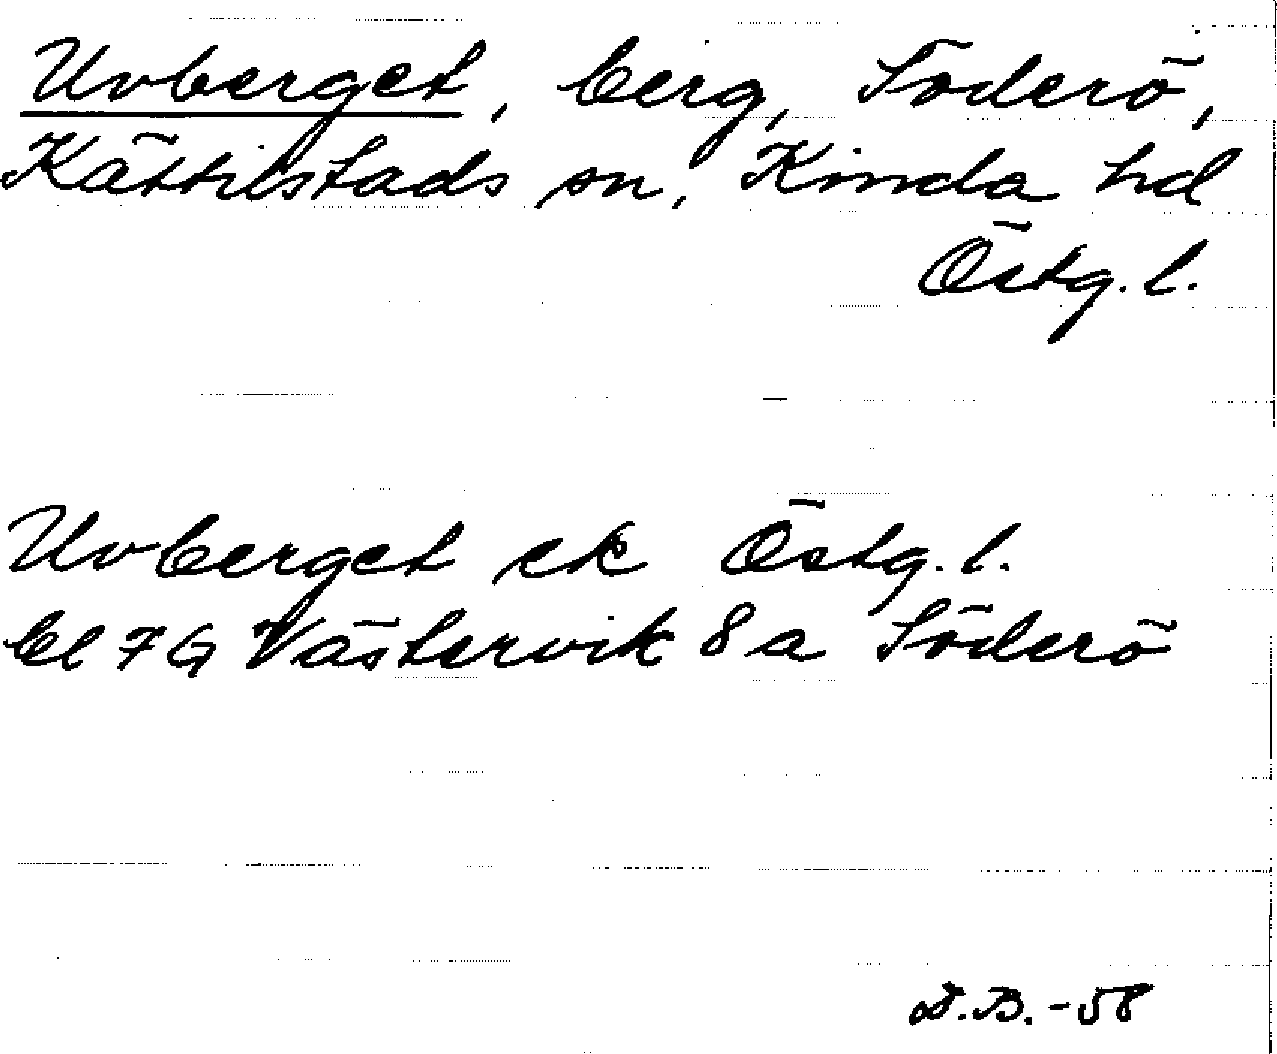 Uvberget, berg, Söderö,
Kättilstads sn, Kinda hd
Östg. l.
Uvberget ek Östg. l.
bl 7 G Västervik 8 a Söderö
D.B. - 58